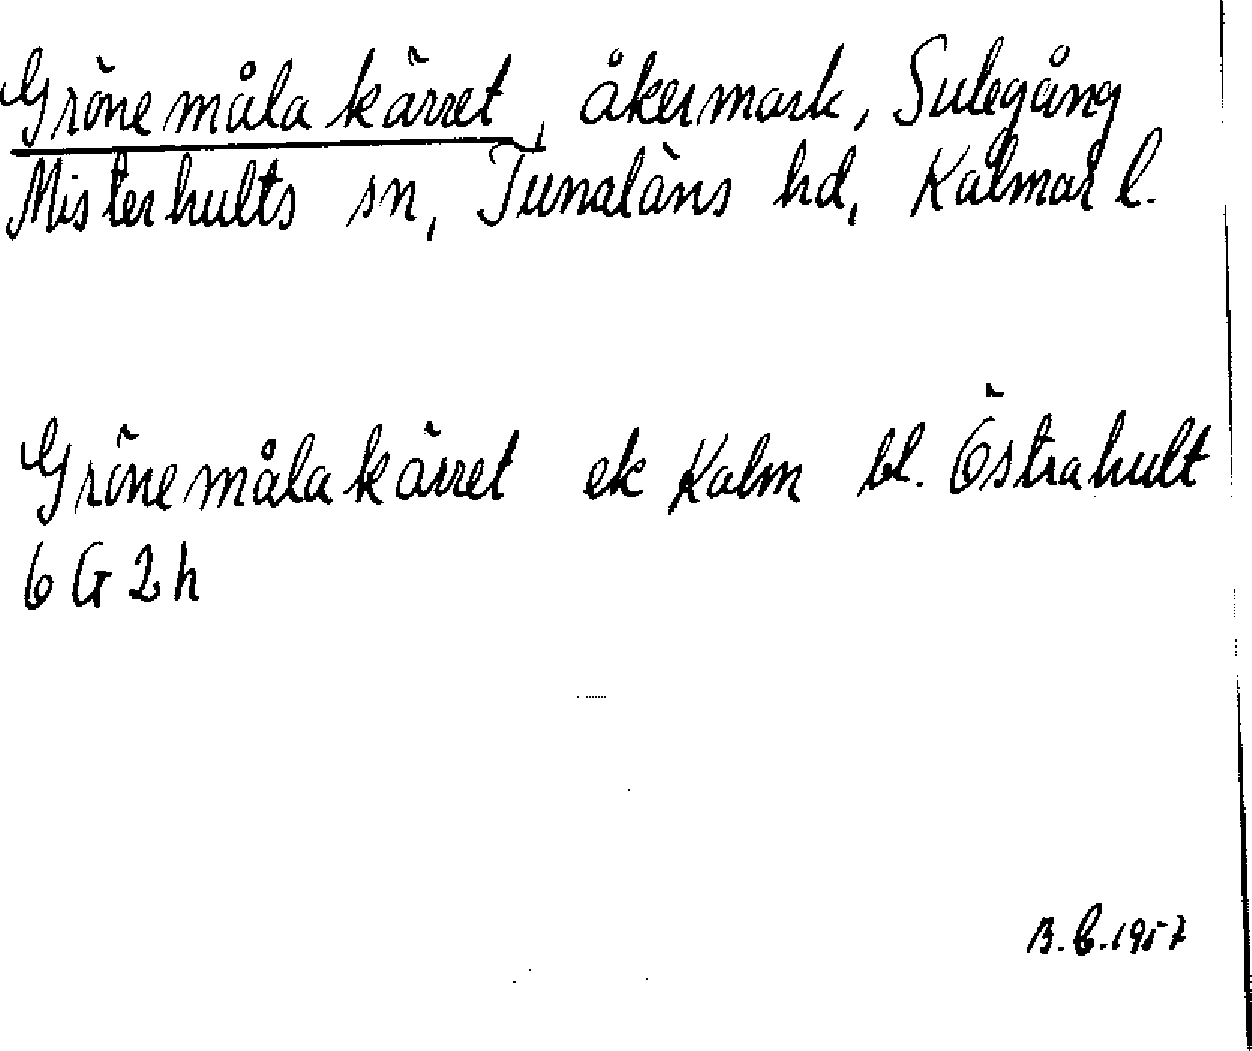 Grönemålakärret, åkermark, Sulegång
Misterhults sn, Tunaläns hd, Kalmar l.
Grönemålakärret ek Kalm bl. Östrahult
6 G 2 h
B.C.1957